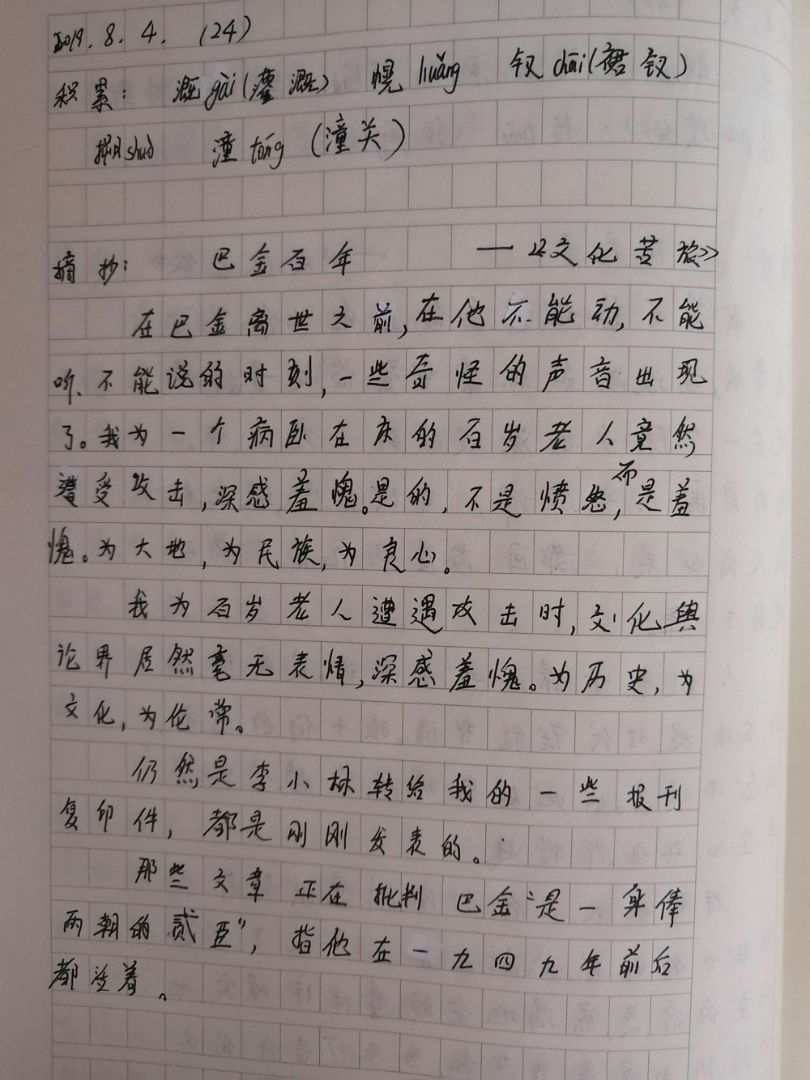 2019.8.4. (24)
积累: 溉gài(灌溉) 幌huǎng 钗chāi(裙钗)
搠shuò 潼tóng(潼关)
摘抄: 巴金百年 —《文化苦旅》
在巴金离世之前,在他不能动,不能
听、不能说的时刻,一些奇怪的声音出现
了。我为一个病卧在床的百岁老人竟然
遭受攻击,深感羞愧。是的,不是愤怒,而是羞
愧。为大地,为民族,为良心。
我为百岁老人遭遇攻击时,文化舆
论界居然毫无表情,深感羞愧。为历史,为
文化,为伦常。
仍然是李小林转给我的一些报刊
复印件,都是刚刚发表的。
那些文章正在批判巴金“是一身俸
两朝的贰臣”,指他在一九四九年前后
都活着。